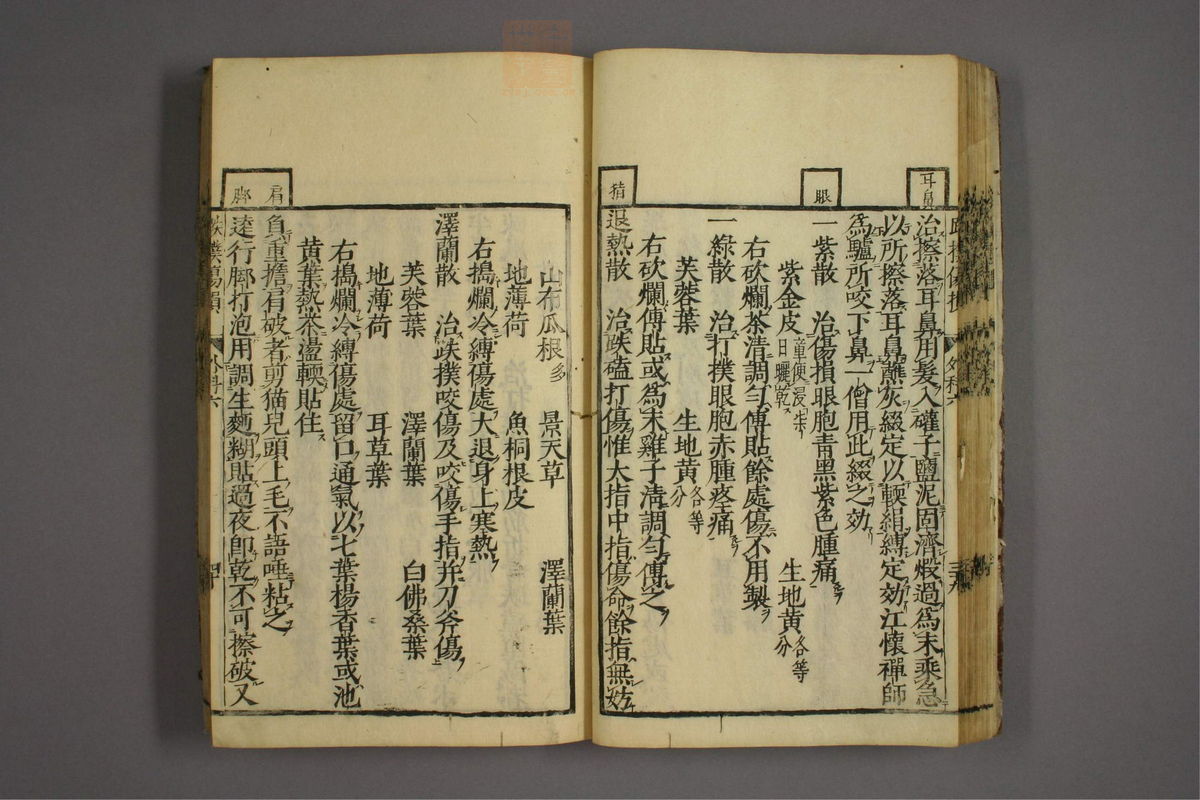 耳鼻
治擦落耳鼻用髮入罐子鹽泥固濟煅過爲末乘急
以所擦落耳鼻蘸灰綴定以輭絹縛定効江懷禪師
爲驢所咬下鼻一僧用此綴之効
眼
一紫散 治傷損眼胞青黑紫色腫痛
紫金皮童便浸七日曬乾 生地黃各等分
右砍爛茶清調勻傅貼餘處傷不用製
一綠散 治打撲眼胞赤腫痓痛
芙蓉葉 生地黃各等分
右砍爛傅貼或爲末雞子淸調勻傅之
指
退熱散 治跌磕打傷惟大指中指傷命餘指無妨
山布瓜根多 景天草 澤蘭葉
地薄荷 魚桐根皮
右搗爛冷縛傷處大退身上寒熱
澤蘭散 治跌撲咬傷及咬傷手指并刀斧傷
芙蓉葉 澤蘭葉 白佛桑葉
地薄荷 耳草葉
右搗爛冷縛傷處留口通氣以七葉楊香葉或池
黃葉熱茶盪輭貼住
肩
負重擔肩破者剪猫兒頭上毛不語唾粘之
脚
逺行脚打泡用調生麵糊貼過夜即乾不可擦破又
外科六